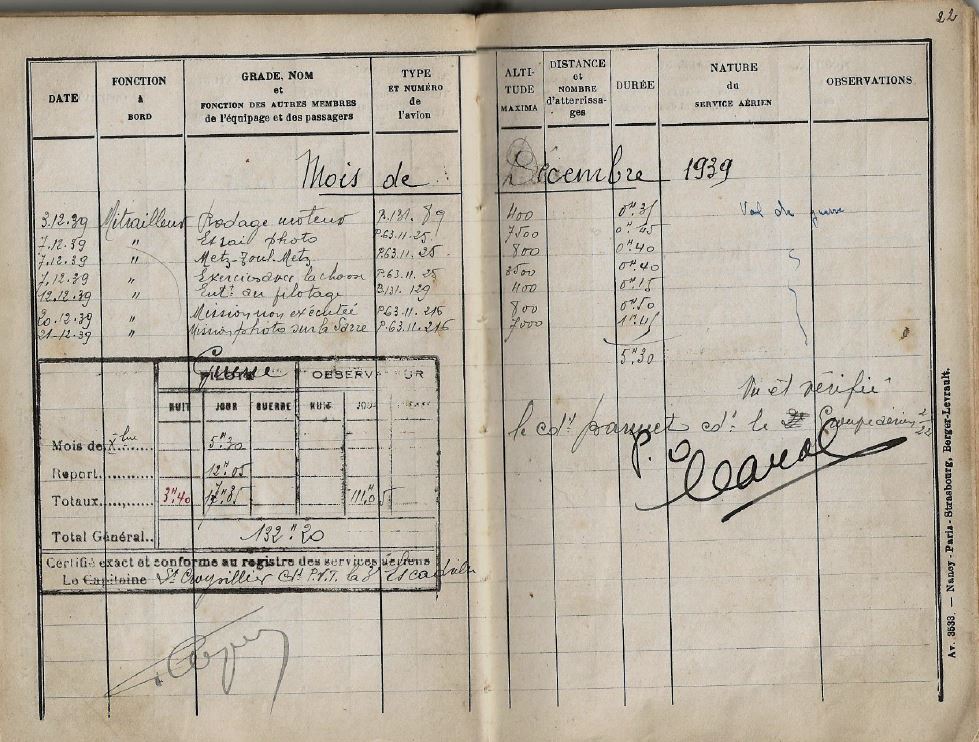 22
DATE
FONCTION
à
BORD
GRADE, NOM
et
FONCTION DES AUTRES MEMBRES
de l'équipage et des passagers
TYPE
ET NUMÉRO
de
l'avion
ALTI-
TUDE
MAXIMA
DISTANCE
et
NOMBRE
d'atterrissa-
ges
DURÉE
NATURE
du
SERVICE AÉRIEN
OBSERVATIONS
Mois de Décembre 1939
3.12.39 Mitrailleur Rodage moteur B.131.89 400 0h.35 Vol de guerre
7.12.39 " Essai photo P.63.11.25 7500 0h.45
7.12.39 " Metz-Toul-Metz P.63.11.25 800 0h.40
7.12.39 " Exercice avec la chasse P.63.11.25 3500 0h.40
12.12.39 " Entt. au pilotage B131.129 400 0h.15
20.12.39 " Mission non exécutée P.63.11.216 800 0h.50
21-12.39 " Mission photo sur la Sarre P.63.11.216 7000 1h.45
5h.30
Guerre OBSERVATEUR
NUIT JOUR GUERRE NUIT JOUR
Mois de Xbre 5h.30
Report 12h.05
Totaux 3h.40 17h.35 111h.05
Total Général.. 132h.20
Certifié exact et conforme au registre des services aériens
Le Capitaine Ct P.I. la 3e Escadrille
Vu et vérifié
le cdt cdt le Groupe aérien 2/22
P.O
Av. 3533. — Nancy-Paris-Strasbourg, Berger-Levrault.